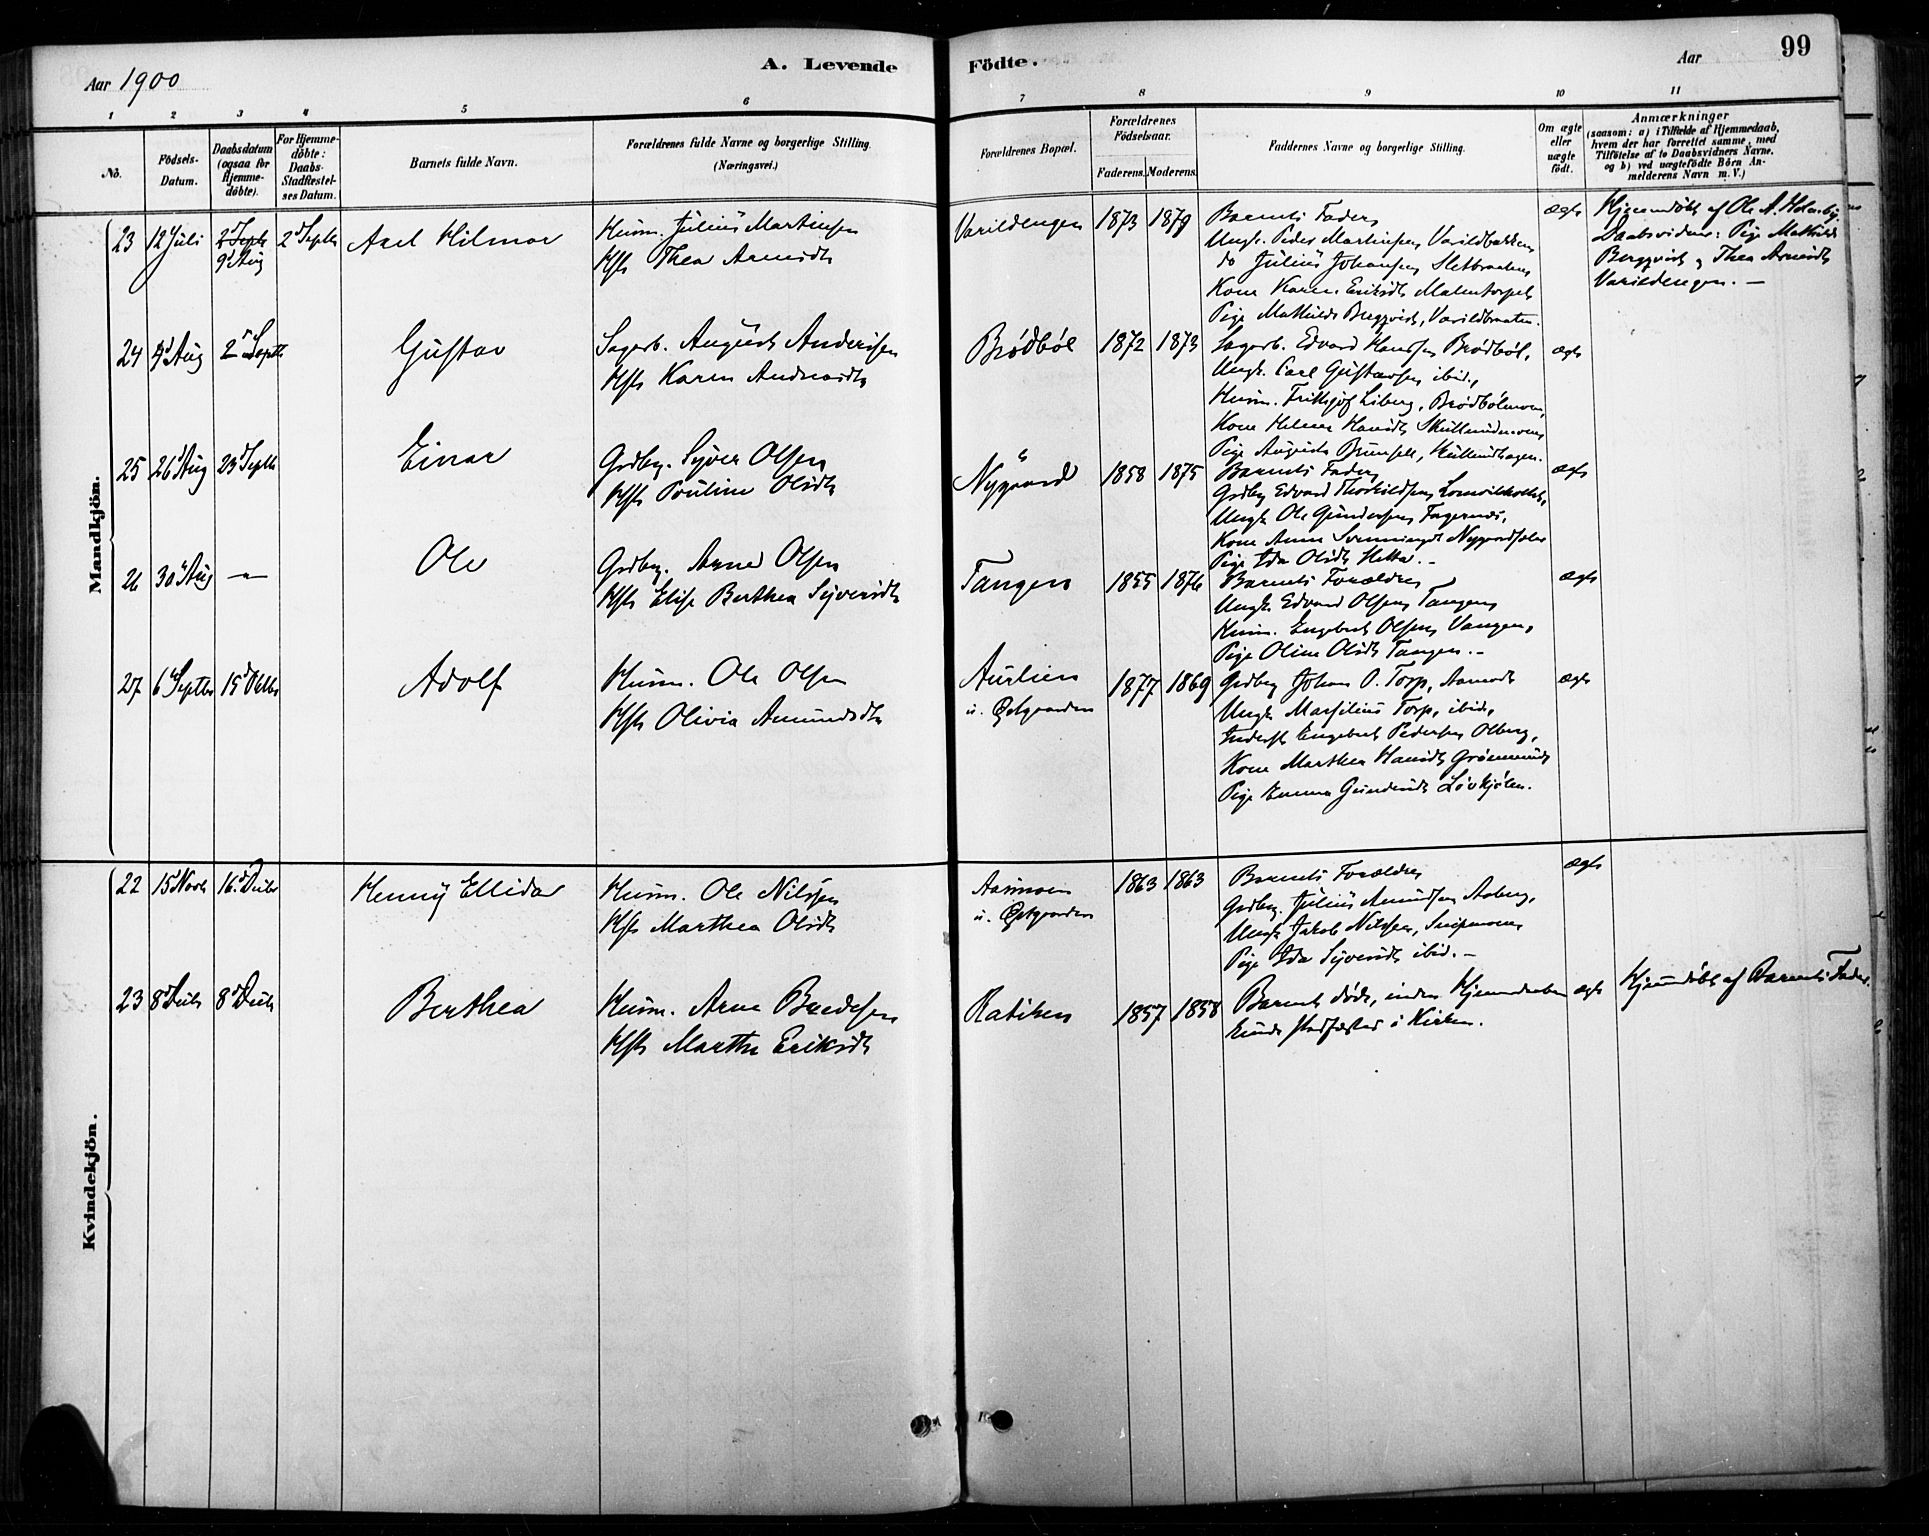 Aar 1900
A. Levende
Födte.
Aar
99
1
2
3
4
5
6
7
8
9
10
11
No.
Födsels-
Datum.
Daabsdatum
(ogsaa for
Hjemme-
döbte).
For Hjemme-
döbte:
Daabs-
Stadfæstel-
ses Datum.
Barnets fulde Navn.
Forældrenes fulde Navne og borgerlige Stilling.
(Næringsvei.)
Forældrenes Bopæl.
Forældrenes
Födselsaar.
Faderens.
Moderens.
Faddernes Navne og borgerlige Stilling.
Om ægte
eller
uægte
født.
Anmærkninger
(saasom: a) i Tilfælde af Hjemmedaab,
hvem der har forrettet samme, med
Tilföielse af to Daabsvidners Navne.
og b) ved uægtefödte Börn An-
melderens Navn m. V.)
Mandkjön.
23
12 Juli
2 Septb
9 Aug
2 Septb
Axel Hilmar
Husm. Julius Martinsen
Hst Thea Arnesdt
Varildengen
1873
1879
Barnets Fader,
Ungk. Peder Martinsen Varildbakken
do Julius Johansen Sletbraaten
Kone Karen Eriksdt Malentorpet
Pige Mathilde Bergqvist, Varildbraaten.
ægte
Hjemmdöbt af Ole A. Holmby.
Daabsvidner: Pige Mathilde
Bergqvist og Thea Arnesdt
Varildengen. —
24
4 Aug
2 Septb
Gustav
Sagarb. August Andersen
Hst Karen Andreasdt
Brödböl
1872
1873
Sagarb. Edvard Hanssen Brödböl,
Ungk. Carl Gustavsen ibid.,
Husm. Frithjof Liberg, Brödbölmoen,
Kone Helene Hansdt
Pige Augusta
ægte
25
26 Aug
23 Septb
Einar
Grdbrg. Syver Olsen
Hst Pauline Olsdt
Nygaard
1858
1875
Barnets Fader,
Grdbrg Edvard Thorkildsen
Ungk. Ole Gundersen Fagernæs,
Kone Anne Svenningsdt
Pige Ida Olsdt Hetta. -
ægte
26
30 Aug
—"—
Ole
Grdbrg. Arne Olsen
Hst Elise Berthea Syversdt
Tangen
1855
1876
Barnets Forældre,
Ungk. Edvard Olsen Tangen,
Husm. Engebret Olsen Vangen,
Pige Oline Olsdt Tangen. -
ægte
27
6 Septbr
15 Oktb
Adolf
Husm. Ole Olsen
Hst Olivia Amundsdt
Aurlien
u. Östgaarden
1877
1869
Grdbrg Johan O. Torp, Aamodt
Ungk Marsilius Torp, ibid,
Inderst Engebret Pedersen Olberg,
Kone Marthea Hansdt
Pige Emma Gundersdt Lövhjölen.
ægte
Kvindekjön.
22
15 Novb
16 Decbr
Henny Ellida
Husm. Ole Nilssen
Hst Marthea Olsdt
Aasmoen
u. Östgaarden
1863
1863
Barnets Forældre,
Grdbrg. Julius Amundsen Aaberg,
Ungk Jakob Nilssen,
Pige Ida Syversdt ibid. -
ægte
23
8 Decb
8 Decb
Berthea
Husm. Arne Bredesen
Hst Marthe Eriksdt
Ratiken
1857
1858
Barnet döde, inden Hjemmedaaben
kunde stadfæstes i Kirken.
ægte
Hjemmdöbt af Barnets Fader.